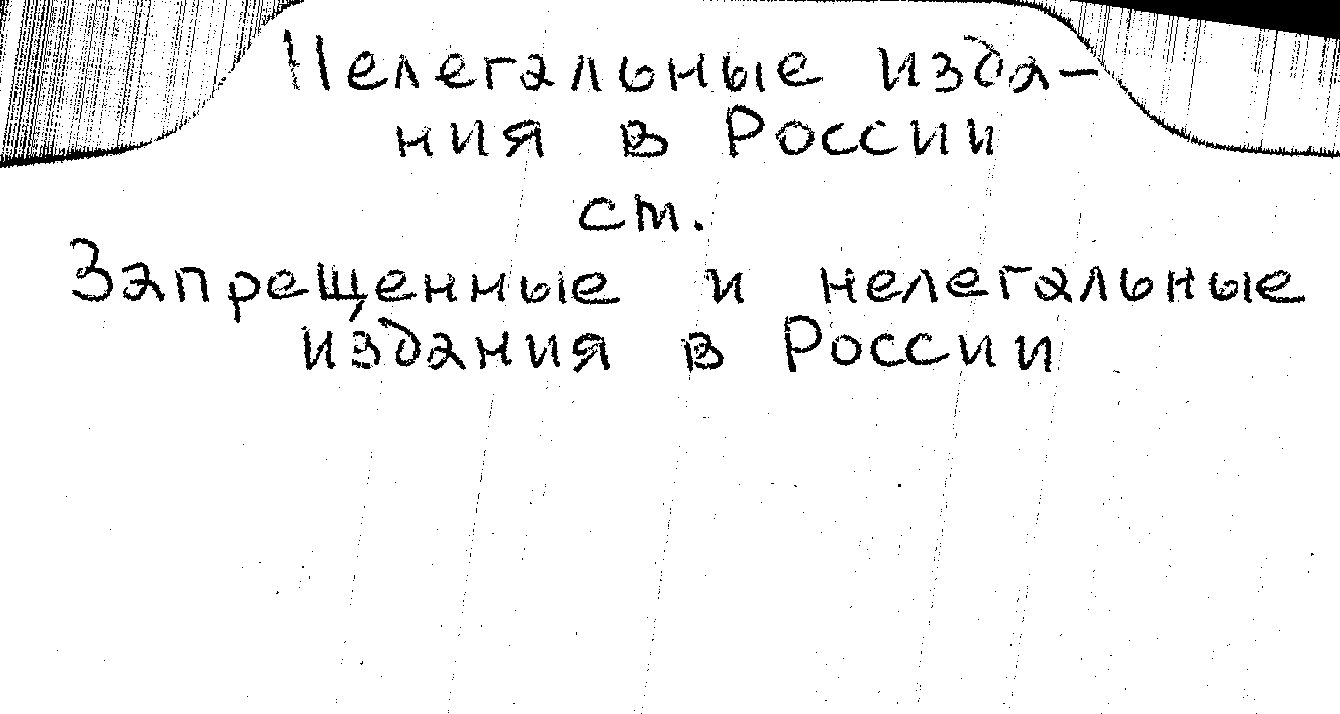 Нелегальные изда-
ния в России
ст.
Запрещенные и нелегальные
издания в России